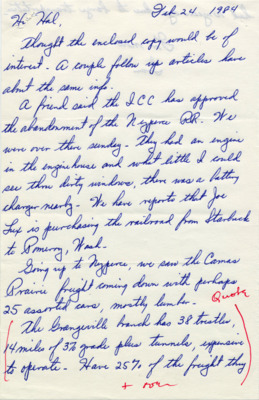 Feb 24, 1984
Hi Hal,
Thought the enclosed copy would be of
interest - A couple follow up articles have
about the same info.
A friend said the ICC has approved
the abandonment of the Nezperce RR. We
were over there sunday - They had an engine
in the enginehouse and what little I could
see thru dirty windows, there was a battery
charger nearby - We have reports that Joe
Lux is purchasing the railroad from Starbuck
to Pomeroy, Wash.
Going up to Nezperce, we saw the Camas
Prairie freight coming down with perhaps
25 assorted cars, mostly lumber.
Quote
(The Grangeville branch has 38 trestles,
14 miles of 3% grade plus tunnels, expensive
to operate. Have 25% of the freight they)
+ over